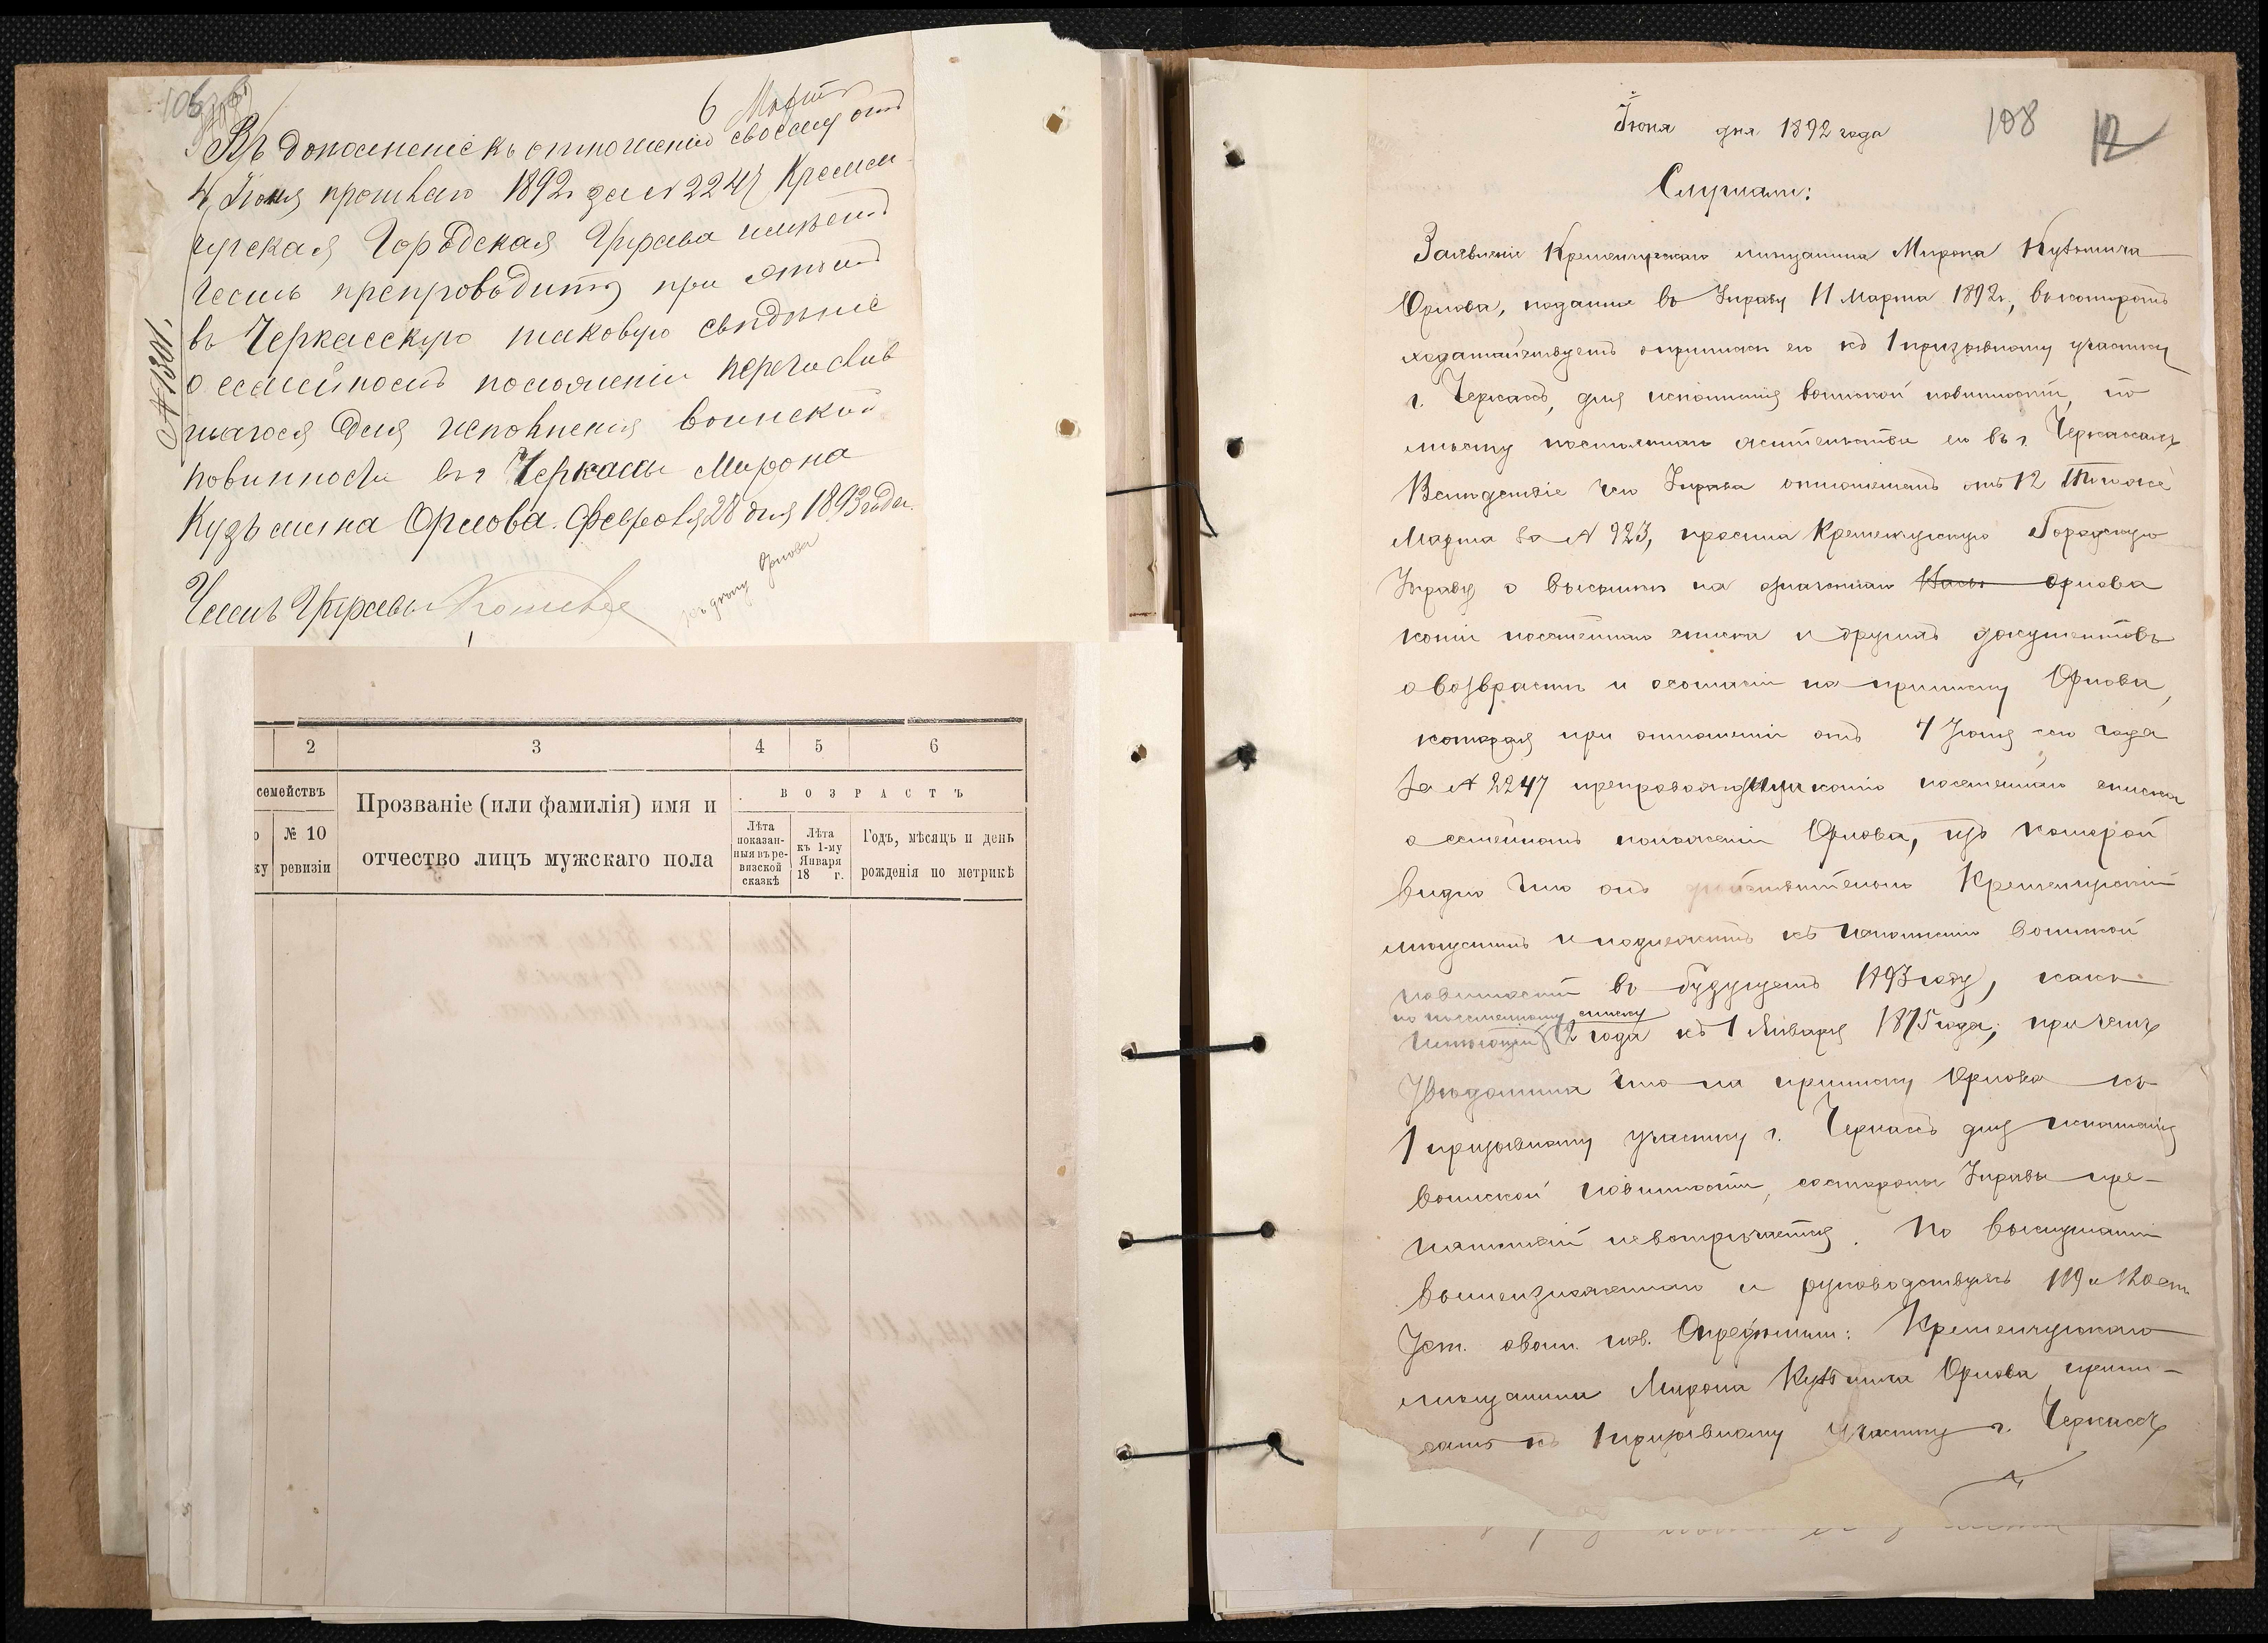 6 Марта
Въ дополненіе къ отношенію своему отъ
4 Іюня прошлаго 1892 г за N 2247 Кремен
чугская Городская Управа имѣетъ
честь препроводить при этомъ
въ Черкасскую таковую свѣдѣніе
о семейномъ положеніи перечислив
шагося для исполненія воинской
повинности въ г Черкасы Мирона
Кузьмина Орлова. Февраля 28 дня 1893 года.
N 1301.
Членъ Управы
Орлова
2 3 4 5 6
семействъ
№ 10
ревизіи
Прозваніе (или фамилія) имя и
отчество лицъ мужскаго пола
ВОЗРАСТЪ
Лѣта
показан-
ныя въ ре-
визской
сказкѣ
Лѣта
къ 1-му
Января
18 г.
Годъ, мѣсяцъ и день
рожденія по метрикѣ
Іюня дня 1892 года
108 12
Слушали:
Заявленіе Кременчугскаго мѣщанина Мирона Кузьмича
Орлова, поданное въ Управу 11 Марта 1892 г., въ которомъ
ходатайствуетъ о припискѣ его къ 1 призывному участку
г. Черкасъ, для исполненія воинской повинности, по
мѣсту постояннаго жительства его въ г. Черкассахъ
Вслѣдствіе чего Управа отношеніемъ отъ 12 того же
Марта за N 923, просила Кременчугскую Городскую
Управу о высылкѣ на означеннаго Орлова
копіи посемейнаго списка и другихъ документовъ
о возврастѣ и согласіи на приписку Орлова,
которая при отношеніи отъ 4 Іюня сего года
за N 2247 препроводила копію посемейнаго списка
о семейномъ положеніи Орлова, изъ которой
видно что онъ дѣйствительно Кременчугскій
мѣщанинъ и подлежитъ къ исполненію воинской
повинности въ будущемъ 1893 году, какъ
по посемейному списку
имѣющій 2 года къ 1 Января 1875 года; при чемъ
Увѣдомила что на приписку Орлова къ
1 призывному участку г. Черкасъ для исполненія
воинской повинности, со стороны Управы пре-
пятствій не встрѣчается. По выслушаніи
вышеизложеннаго и руководствуясь 119 и ст
Уст. о воин. пов. Опредѣлили: Кременчугскаго
мѣщанина Мирона Кузьмича Орлова припи-
сать къ 1 призывному участку г. Черкассъ